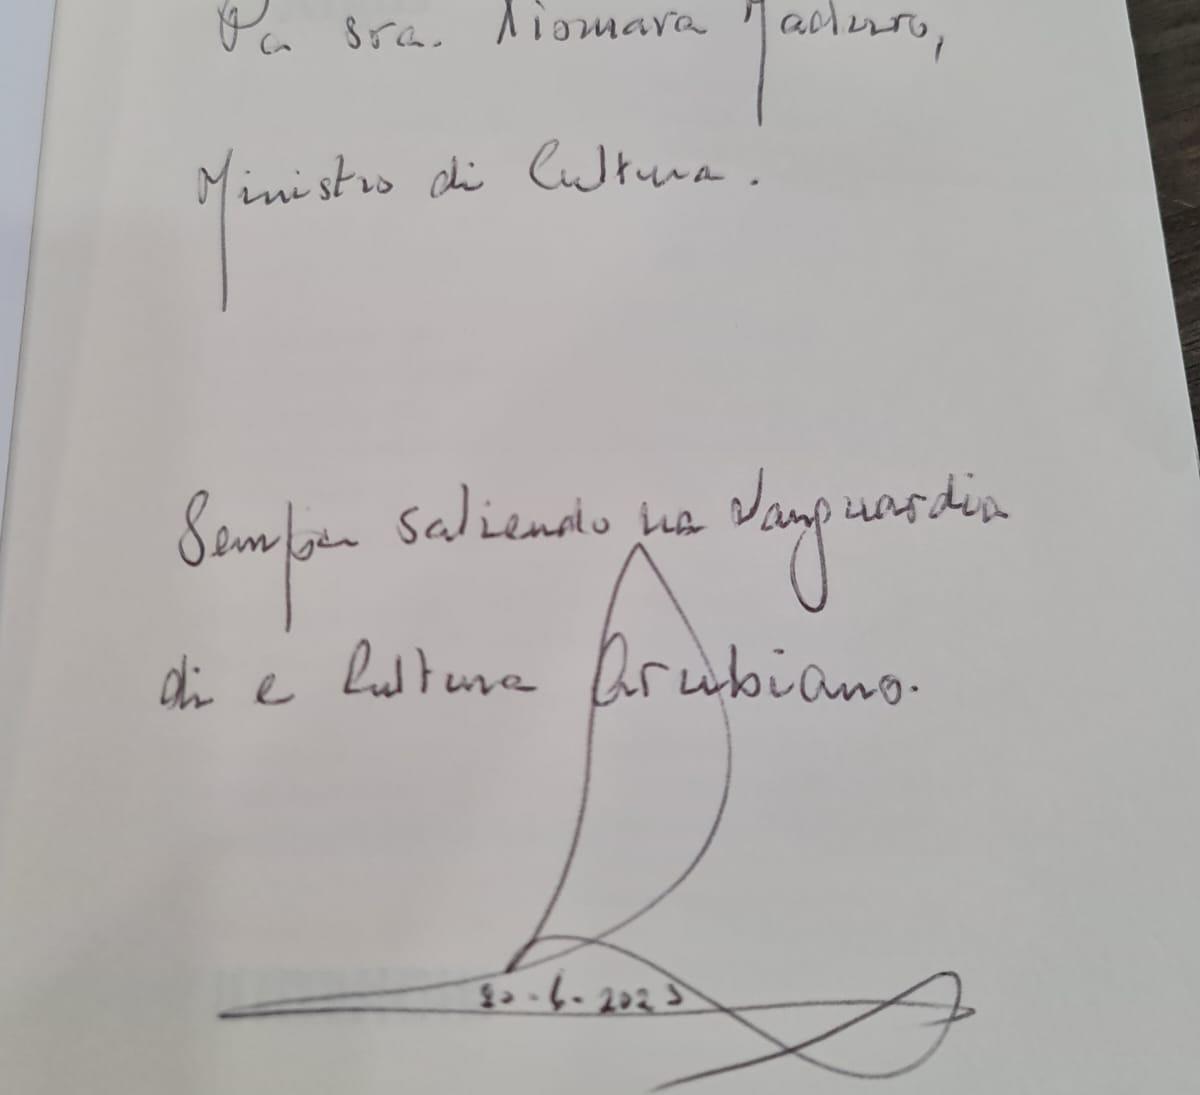 Pa sra. Xiomara Maduro,
Ministro di Cultura.
Semper saliendo na Vanguardia
di e Cultura Arubiano.
20-6-2023